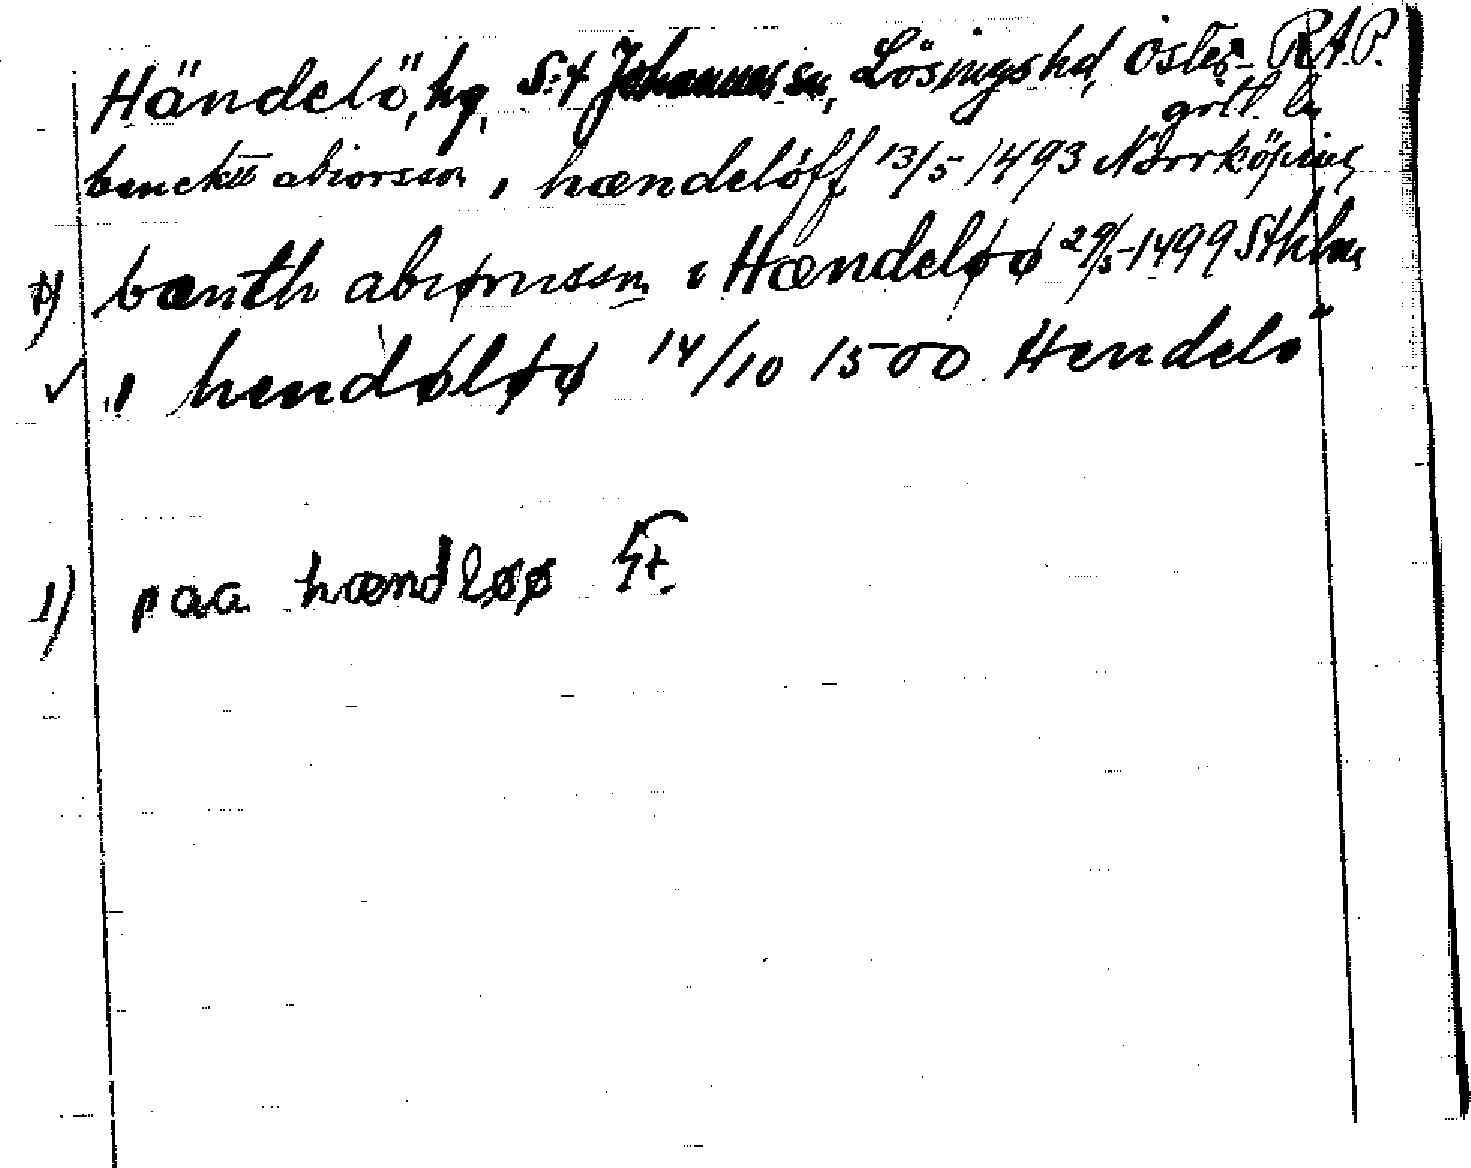 Händelö, hg, S:t Johannes sn, Lösings hd, Öster- R A P.
götl. län
bencktt abiorsson i hændelöff 13/5 1493 Norrköping
1) bænth abiørnssn i Hændeløø 29/5 1499 Sthlm
✓ i hendøløø 14/10 1500 Hendelö
1) paa hændløø